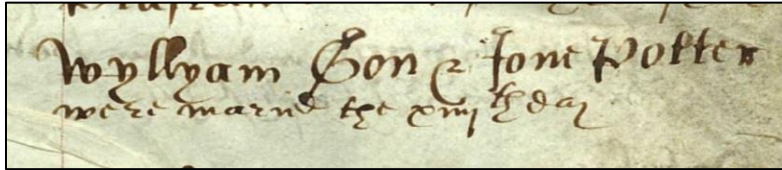 Wyllyam Son & Jone Potter
were maried the xiiij th day